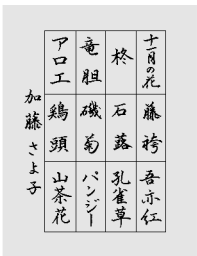 十一月の花
藤袴
吾亦紅
柊
石蕗
孔雀草
竜胆
磯菊
パンジー
アロエ
鶏頭
山茶花
加藤さよ子